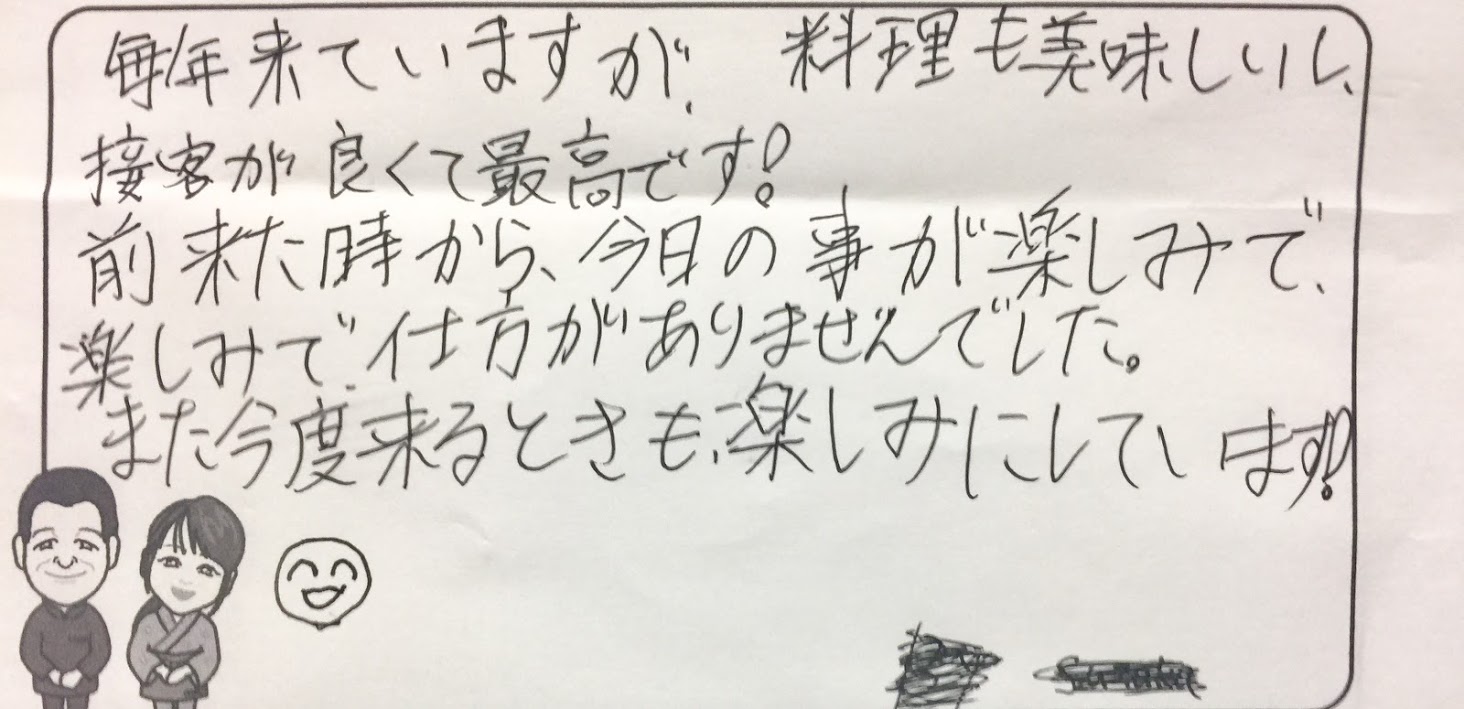 毎年来ていますが、料理も美味しいし、
接客が良くて最高です!
前来た時から、今日の事が楽しみで、
楽しみで、仕方がありませんでした。
また今度来るときも、楽しみにしています!!